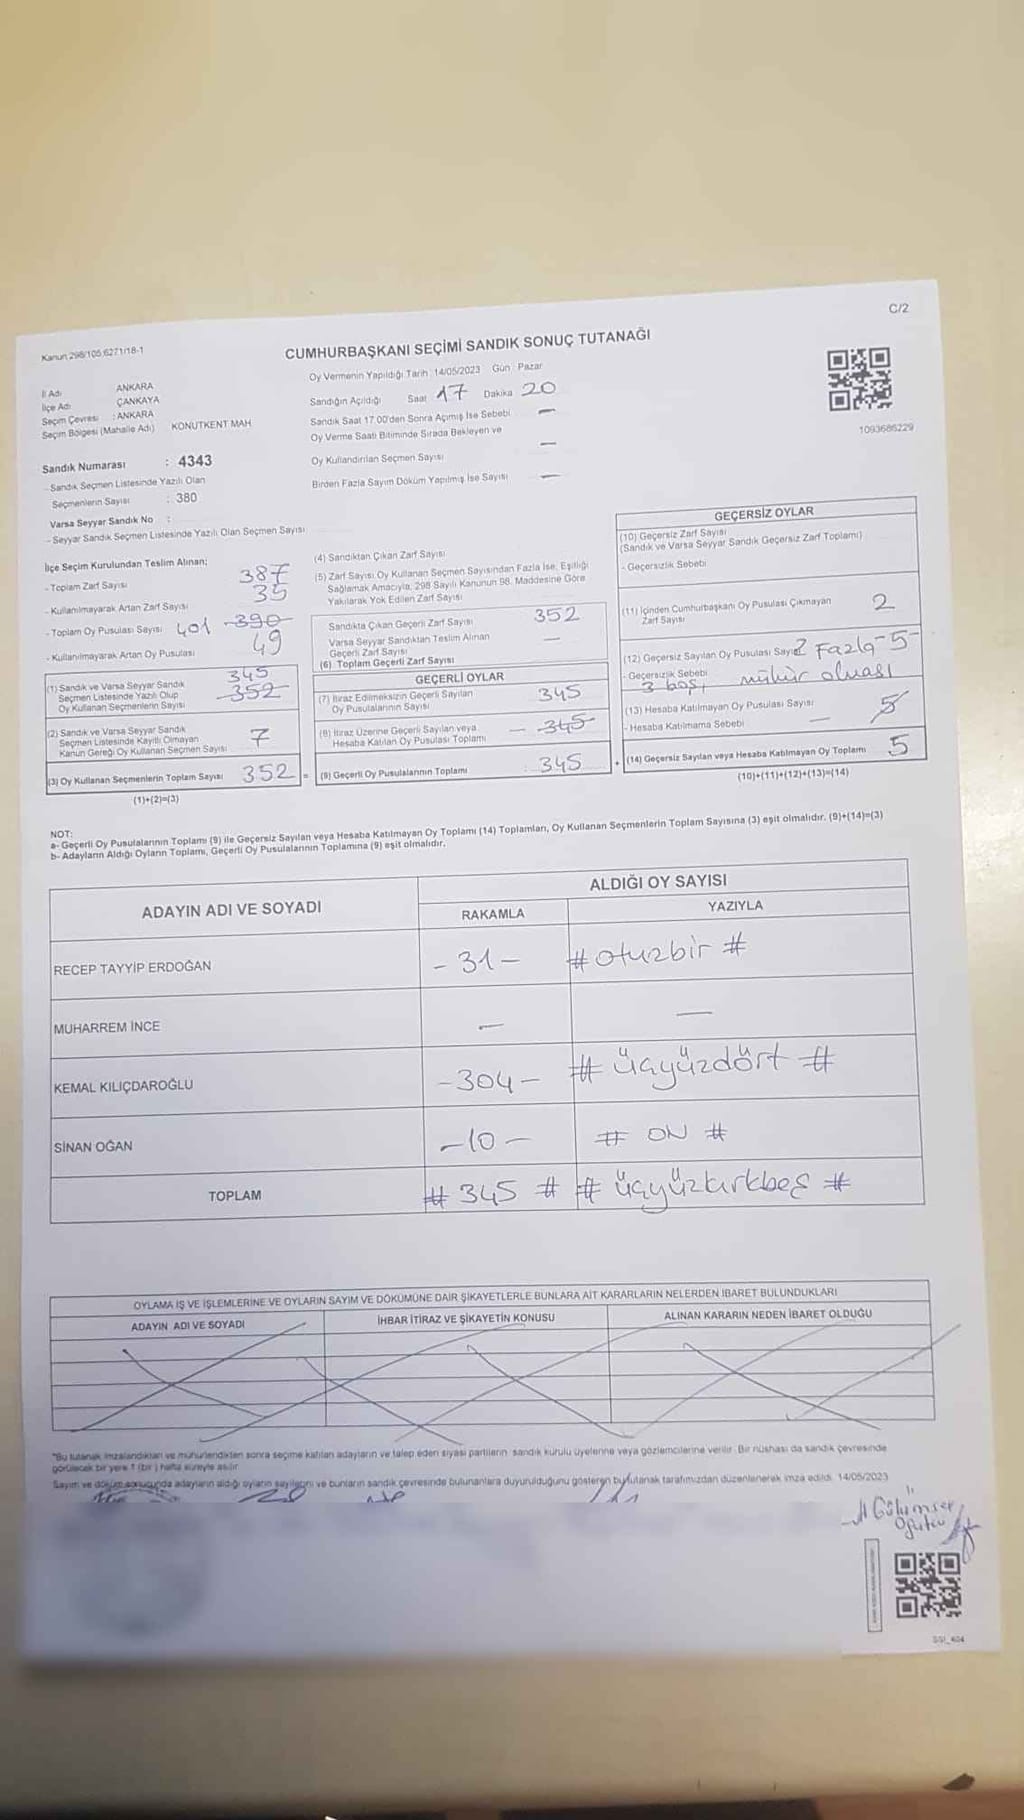 C/2
Kanun 298/105.6271/18-1
CUMHURBAŞKANI SEÇİMİ SANDIK SONUÇ TUTANAĞI
İl Adı ANKARA
İlçe Adı ÇANKAYA
Seçim Çevresi : ANKARA
Seçim Bölgesi (Mahalle Adı) KONUTKENT MAH.
Sandık Numarası : 4343
- Sandık Seçmen Listesinde Yazılı Olan
Seçmenlerin Sayısı : 380
Varsa Seyyar Sandık No :
- Seyyar Sandık Seçmen Listesinde Yazılı Olan Seçmen Sayısı
Oy Vermenin Yapıldığı Tarih : 14/05/2023 Gün : Pazar
Sandığın Açıldığı Saat 17 Dakika 20
Sandık Saat 17.00'den Sonra Açılmış İse Sebebi —
Oy Verme Saati Bitiminde Sırada Bekleyen ve
Oy Kullandırılan Seçmen Sayısı —
Birden Fazla Sayım Döküm Yapılmış İse Sayısı —
1093686229
İlçe Seçim Kurulundan Teslim Alınan;
- Toplam Zarf Sayısı 387
- Kullanılmayarak Artan Zarf Sayısı 35
- Toplam Oy Pusulası Sayısı 401 390
- Kullanılmayarak Artan Oy Pusulası 49
(1) Sandık ve Varsa Seyyar Sandık 345
Seçmen Listesinde Yazılı Olup 352
Oy Kullanan Seçmenlerin Sayısı
(2) Sandık ve Varsa Seyyar Sandık
Seçmen Listesinde Kayıtlı Olmayan 7
Kanun Gereği Oy Kullanan Seçmen Sayısı
(3) Oy Kullanan Seçmenlerin Toplam Sayısı 352 =
(1)+(2)=(3)
(4) Sandıktan Çıkan Zarf Sayısı
(5) Zarf Sayısı Oy Kullanan Seçmen Sayısından Fazla İse, Eşitliği
Sağlamak Amacıyla, 298 Sayılı Kanunun 98. Maddesine Göre
Yakılarak Yok Edilen Zarf Sayısı
Sandıkta Çıkan Geçerli Zarf Sayısı 352
Varsa Seyyar Sandıktan Teslim Alınan —
Geçerli Zarf Sayısı
(6) Toplam Geçerli Zarf Sayısı
GEÇERLİ OYLAR
(7) İtiraz Edilmeksizin Geçerli Sayılan 345
Oy Pusulalarının Sayısı
(8) İtiraz Üzerine Geçerli Sayılan veya — 345
Hesaba Katılan Oy Pusulası Toplamı
(9) Geçerli Oy Pusulalarının Toplamı : 345 +
GEÇERSİZ OYLAR
(10) Geçersiz Zarf Sayısı
(Sandık ve Varsa Seyyar Sandık Geçersiz Zarf Toplamı)
- Geçersizlik Sebebi
(11) İçinden Cumhurbaşkanı Oy Pusulası Çıkmayan 2
Zarf Sayısı
(12) Geçersiz Sayılan Oy Pusulası Sayısı 2 Fazla -5-
- Geçersizlik Sebebi mühür olması
3 boş,
(13) Hesaba Katılmayan Oy Pusulası Sayısı 5
- Hesaba Katılmama Sebebi —
(14) Geçersiz Sayılan veya Hesaba Katılmayan Oy Toplamı 5
(10)+(11)+(12)+(13)=(14)
NOT:
a- Geçerli Oy Pusulalarının Toplamı (9) ile Geçersiz Sayılan veya Hesaba Katılmayan Oy Toplamı (14) Toplamları, Oy Kullanan Seçmenlerin Toplam Sayısına (3) eşit olmalıdır. (9)+(14)=(3)
b- Adayların Aldığı Oyların Toplamı, Geçerli Oy Pusulalarının Toplamına (9) eşit olmalıdır.
ADAYIN ADI VE SOYADI
ALDIĞI OY SAYISI
RAKAMLA YAZIYLA
RECEP TAYYİP ERDOĞAN - 31 - # otuzbir #
MUHARREM İNCE — —
KEMAL KILIÇDAROĞLU - 304 - # üçyüzdört #
SİNAN OĞAN - 10 - # ON #
TOPLAM # 345 # # üçyüzkırkbeş #
OYLAMA İŞ VE İŞLEMLERİNE VE OYLARIN SAYIM VE DÖKÜMÜNE DAİR ŞİKAYETLERLE BUNLARA AİT KARARLARIN NELERDEN İBARET BULUNDUKLARI
ADAYIN ADI VE SOYADI İHBAR İTİRAZ VE ŞİKAYETİN KONUSU ALINAN KARARIN NEDEN İBARET OLDUĞU
"Bu tutanak imzalandıktan ve mühürlendikten sonra seçime katılan adayların ve talep eden siyasi partilerin sandık kurulu üyelerine veya gözlemcilerine verilir. Bir nüshası da sandık çevresinde
görülecek bir yere 1 (bir) hafta süreyle asılır.
Sayım ve döküm sonucunda adayların aldığı oyların sayılarını ve bunların sandık çevresinde bulunanlara duyurulduğunu gösteren bu tutanak tarafımızdan düzenlenerek imza edildi. 14/05/2023
Gülümser
Öğütcü
SSI_404